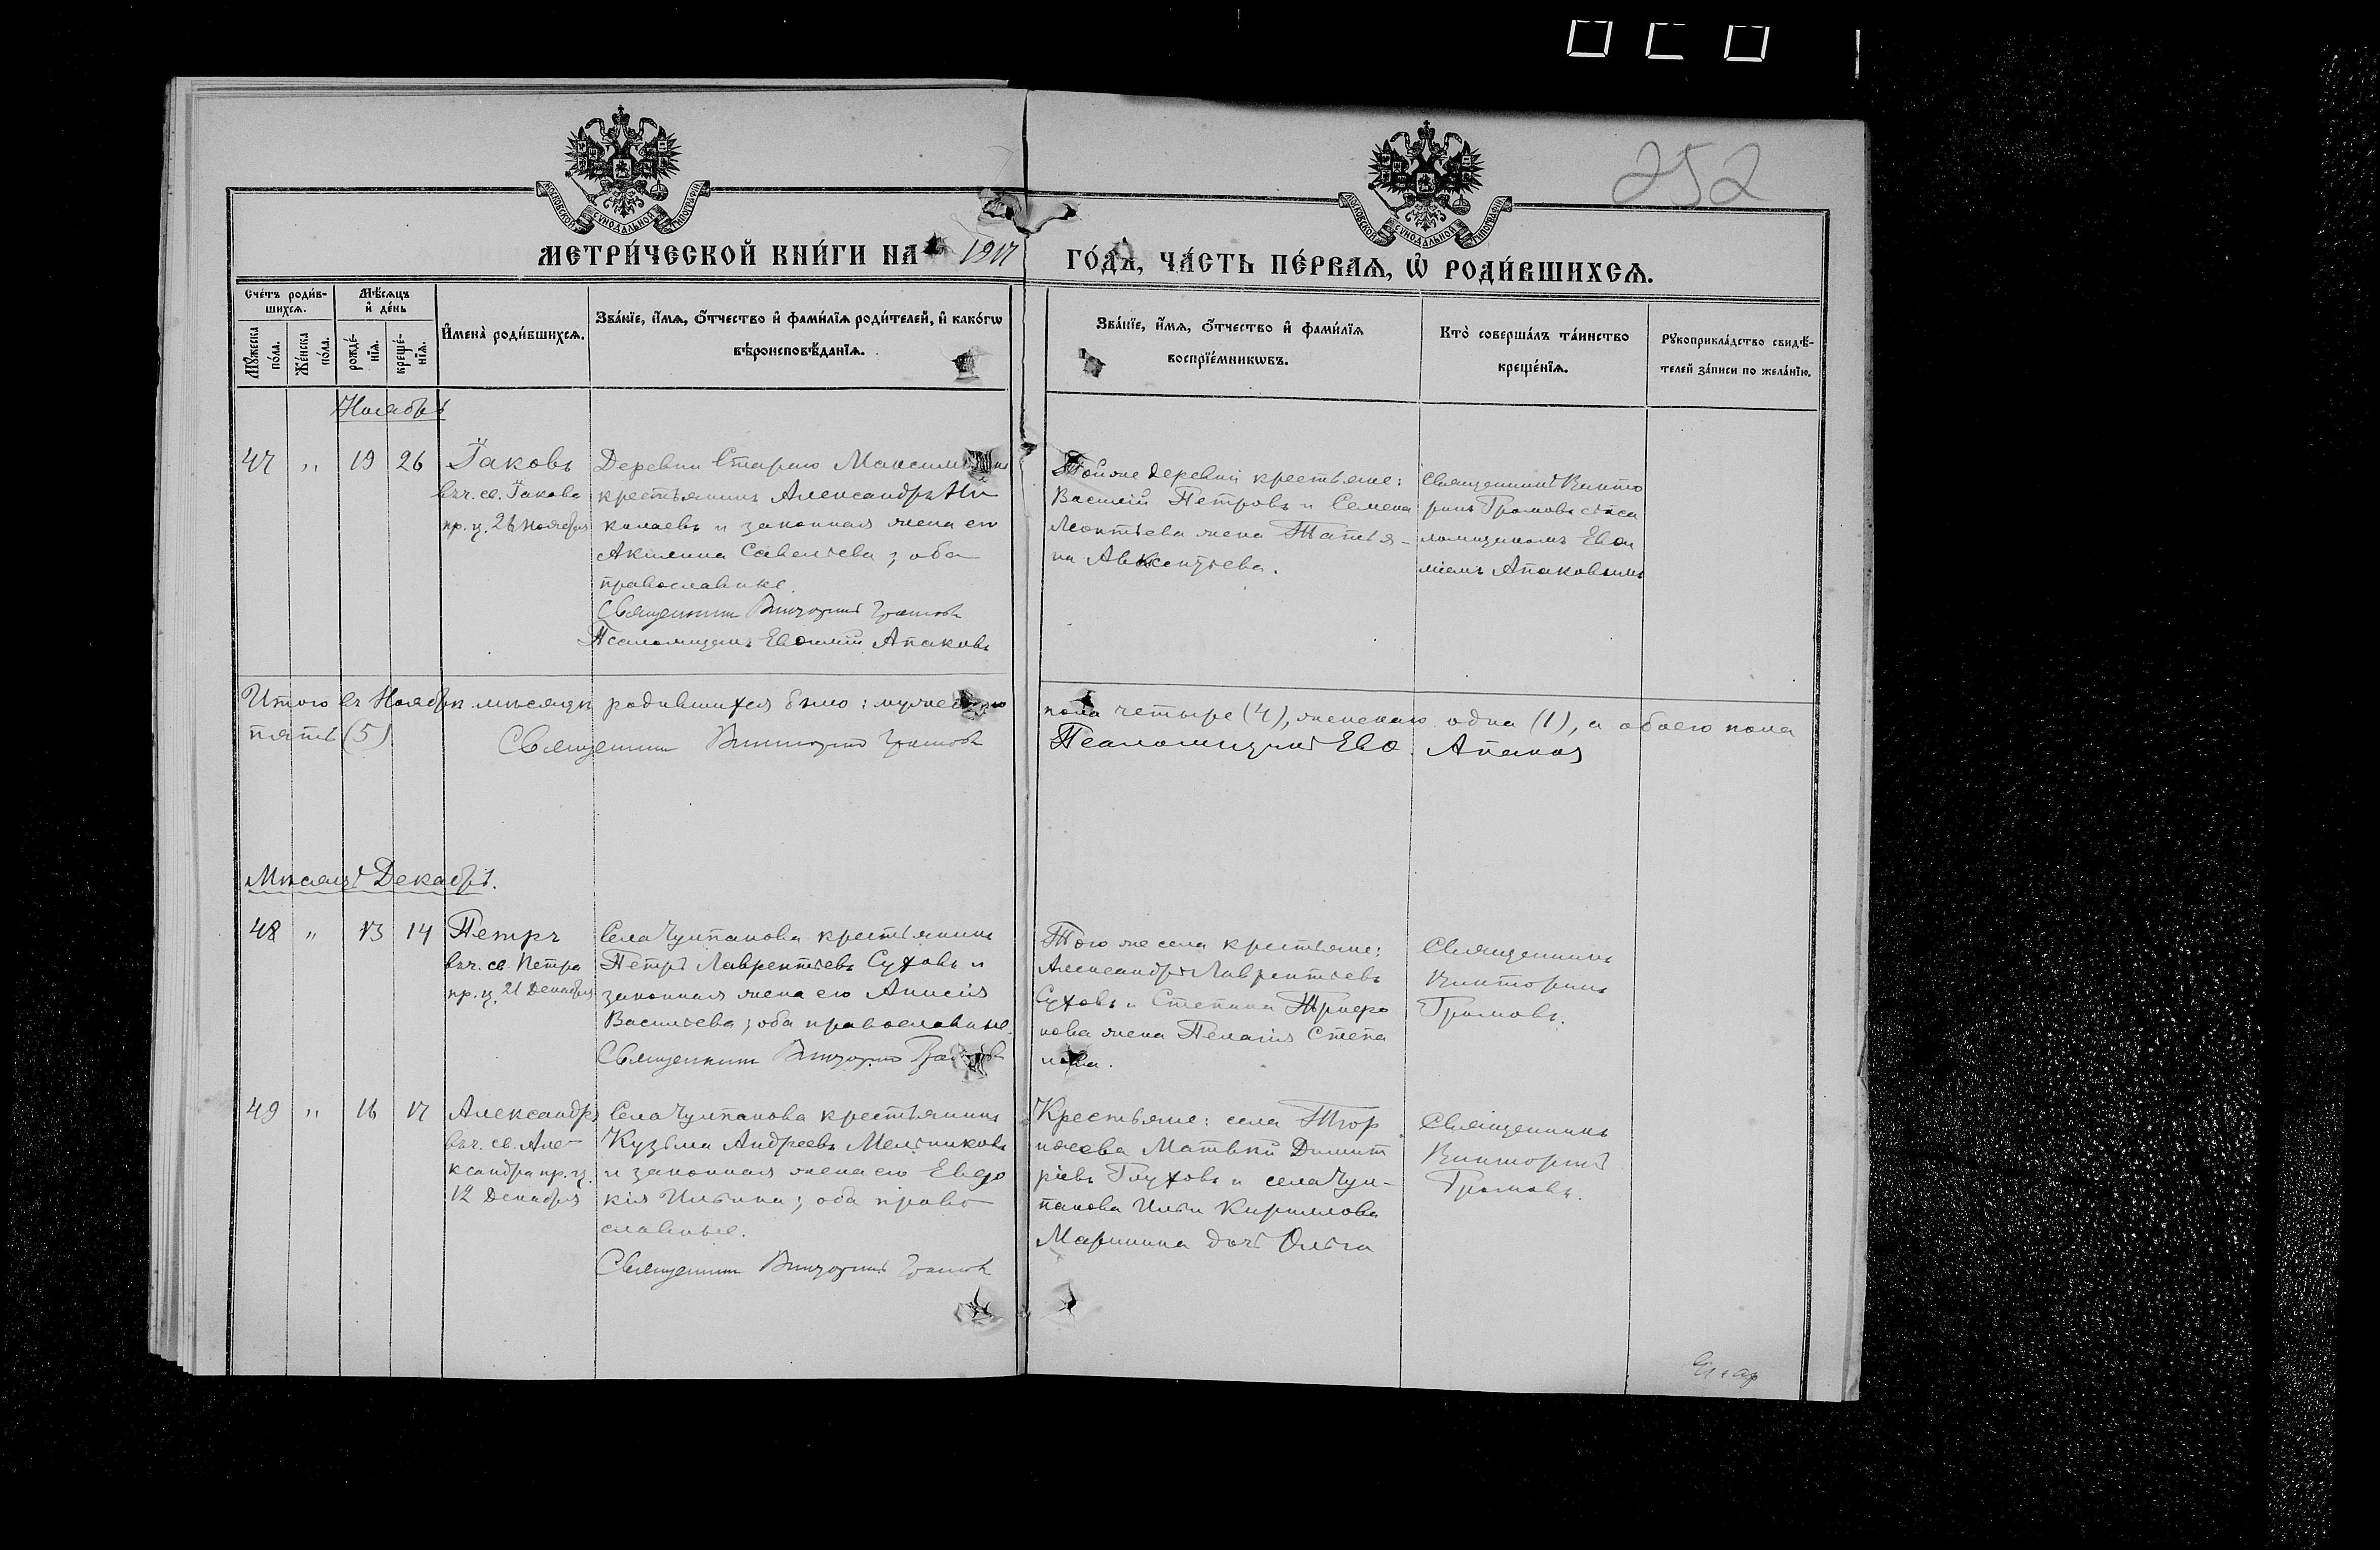 252
МОСКОВСКОЙ СѴНОДАЛЬНОЙ ТИПОГРАФІИ
МОСКОВСКОЙ СѴНОДАЛЬНОЙ ТИПОГРАФІИ
МЕТРИ́ЧЕСКОЙ КНИ́ГИ НА 1917 ГО́ДЪ, ЧА́СТЬ ПЕ́РВАѦ, Ѡ РОДИ́ВШИХСѦ.
Сче́тъ роди́в-
шихсѧ.
Мꙋжеска по́ла.
Же́нска по́ла.
Мѣ́сѧцъ
и҆ де́нь
рожде́-
нїѧ.
креще́-
нїѧ.
И҆мена̀ роди́вшихсѧ.
Зва́нїе, и҆́мѧ, ѻ҆́тчество и҆ фами́лїѧ роди́телей, и҆ како́гѡ
вѣроисповѣ́данїѧ.
Зва́нїе, и҆́мѧ, ѻ҆́тчество и҆ фами́лїѧ
воспрїе́мникѡвъ.
Кто̀ соверша́лъ та́инство
креще́нїѧ.
Рꙋкоприкла́дство свидѣ́-
телей за́писи по жела́нїю.
Ноябрь
47 " 19 26
Іаковъ
вѣч. св. Іакова
пр. ц. 26 Ноября
Деревни Стараго
крестьянинъ Александръ Ни
колаевъ и законная жена его
Акилина Савельева; оба
православные.
Священникъ Викторинъ Громовъ
Псаломщикъ Евѳимій Апаковъ
Той же деревни крестьяне:
Василій Петровъ и Семена
Леонтьева жена Татья-
на Авксентьева.
Священникъ Викто
ринъ Громовъ съ пса
ломщикомъ Евѳи
міемъ Апаковымъ
Итого въ Ноябрѣ мѣсяцѣ родившихся было: мужескаго пола четыре (4), женскаго одна (1), а обоего пола
пять (5)
Священникъ Викторинъ Громовъ
Псаломщикъ Евѳ. Апаковъ
Мѣсяцъ Декабрь.
48 " 13 14
Петръ
вѣч. св. Петра
пр. ц. 21 Декабря
Села Чулпанова крестьянинъ
Петръ Лаврентьевъ Суховъ и
законная жена его Анисія
Васильева; оба православные.
Священникъ Викторинъ Громовъ
Того же села крестьяне:
Александръ Лаврентьевъ
Суховъ и Степана Трифо
нова жена Пелагія Степа
нова.
Священникъ
Викторинъ
Громовъ.
49 " 16 17
Александръ
вѣч. св. Але-
ксандра пр. ц.
12 Декабря
Села Чулпанова крестьянинъ
Кузьма Андреевъ Мельниковъ
и законная жена его Евдо
кія Ильина; оба право-
славные.
Священникъ Викторинъ Громовъ
Крестьяне: села Тюр
нясева Матвѣй Димит
ріевъ Глуховъ и села Чул-
панова Ильи Кириллова
Маринина дочь Ольга
Священникъ
Викторинъ
Громовъ.